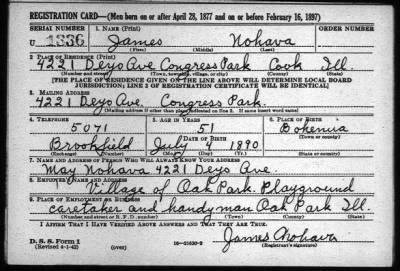 REGISTRATION CARD—(Men born on or after April 28, 1877 and on or before February 16, 1897)
SERIAL NUMBER 1. NAME (Print) ORDER NUMBER
U 1336 James Nohava
(First) (Middle) (Last)
2. PLACE OF RESIDENCE (Print)
4221 Deyo Ave Congress Park Cook Ill.
(Number and street) (Town, township, village, or city) (County) (State)
[THE PLACE OF RESIDENCE GIVEN ON THE LINE ABOVE WILL DETERMINE LOCAL BOARD
JURISDICTION; LINE 2 OF REGISTRATION CERTIFICATE WILL BE IDENTICAL]
3. MAILING ADDRESS
4221 Deyo Ave Congress Park.
(Mailing address if other than place indicated on line 2. If same insert word same)
4. TELEPHONE 5. AGE IN YEARS 6. PLACE OF BIRTH
5071 51 Bohemia
DATE OF BIRTH (Town or county)
Brookfield July 4 1890
(Exchange) (Number) (Mo.) (Day) (Yr.) (State or country)
7. NAME AND ADDRESS OF PERSON WHO WILL ALWAYS KNOW YOUR ADDRESS
May Nohava 4221 Deyo Ave.
8. EMPLOYER'S NAME AND ADDRESS
Village of Oak Park. Playground
9. PLACE OF EMPLOYMENT OR BUSINESS
caretaker and handyman Oak Park Ill.
(Number and street or R. F. D. number) (Town) (County) (State)
I AFFIRM THAT I HAVE VERIFIED ABOVE ANSWERS AND THAT THEY ARE TRUE.
D. S. S. Form 1
(Revised 4-1-42) (over) James Nohava
(Registrant's signature)